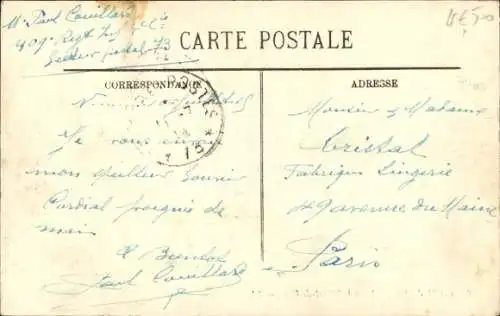 Mr Paul Couillard
409e Regt
Secteur postal 73
CARTE POSTALE
CORRESPONDANCE
ADRESSE
POSTES
Je vous envoie
mon meilleur Souvenir
Cordial
de
moi
Paul Couillard
Monsieur & Madame
Cristal
Fabrique Lingerie
49 avenue du Maine
Paris